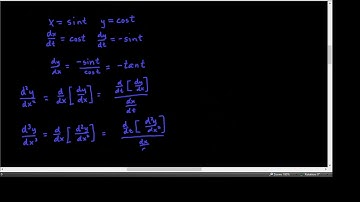 x = sint y = cost
dx/dt = cost dy/dt = -sint
dy/dx = -sint/cost = -tant
d²y/dx² = d/dx [dy/dx] = d/dt [dy/dx] / dx/dt
d³y/dx³ = d/dx [d²y/dx²] = d/dt [d²y/dx²] / dx/